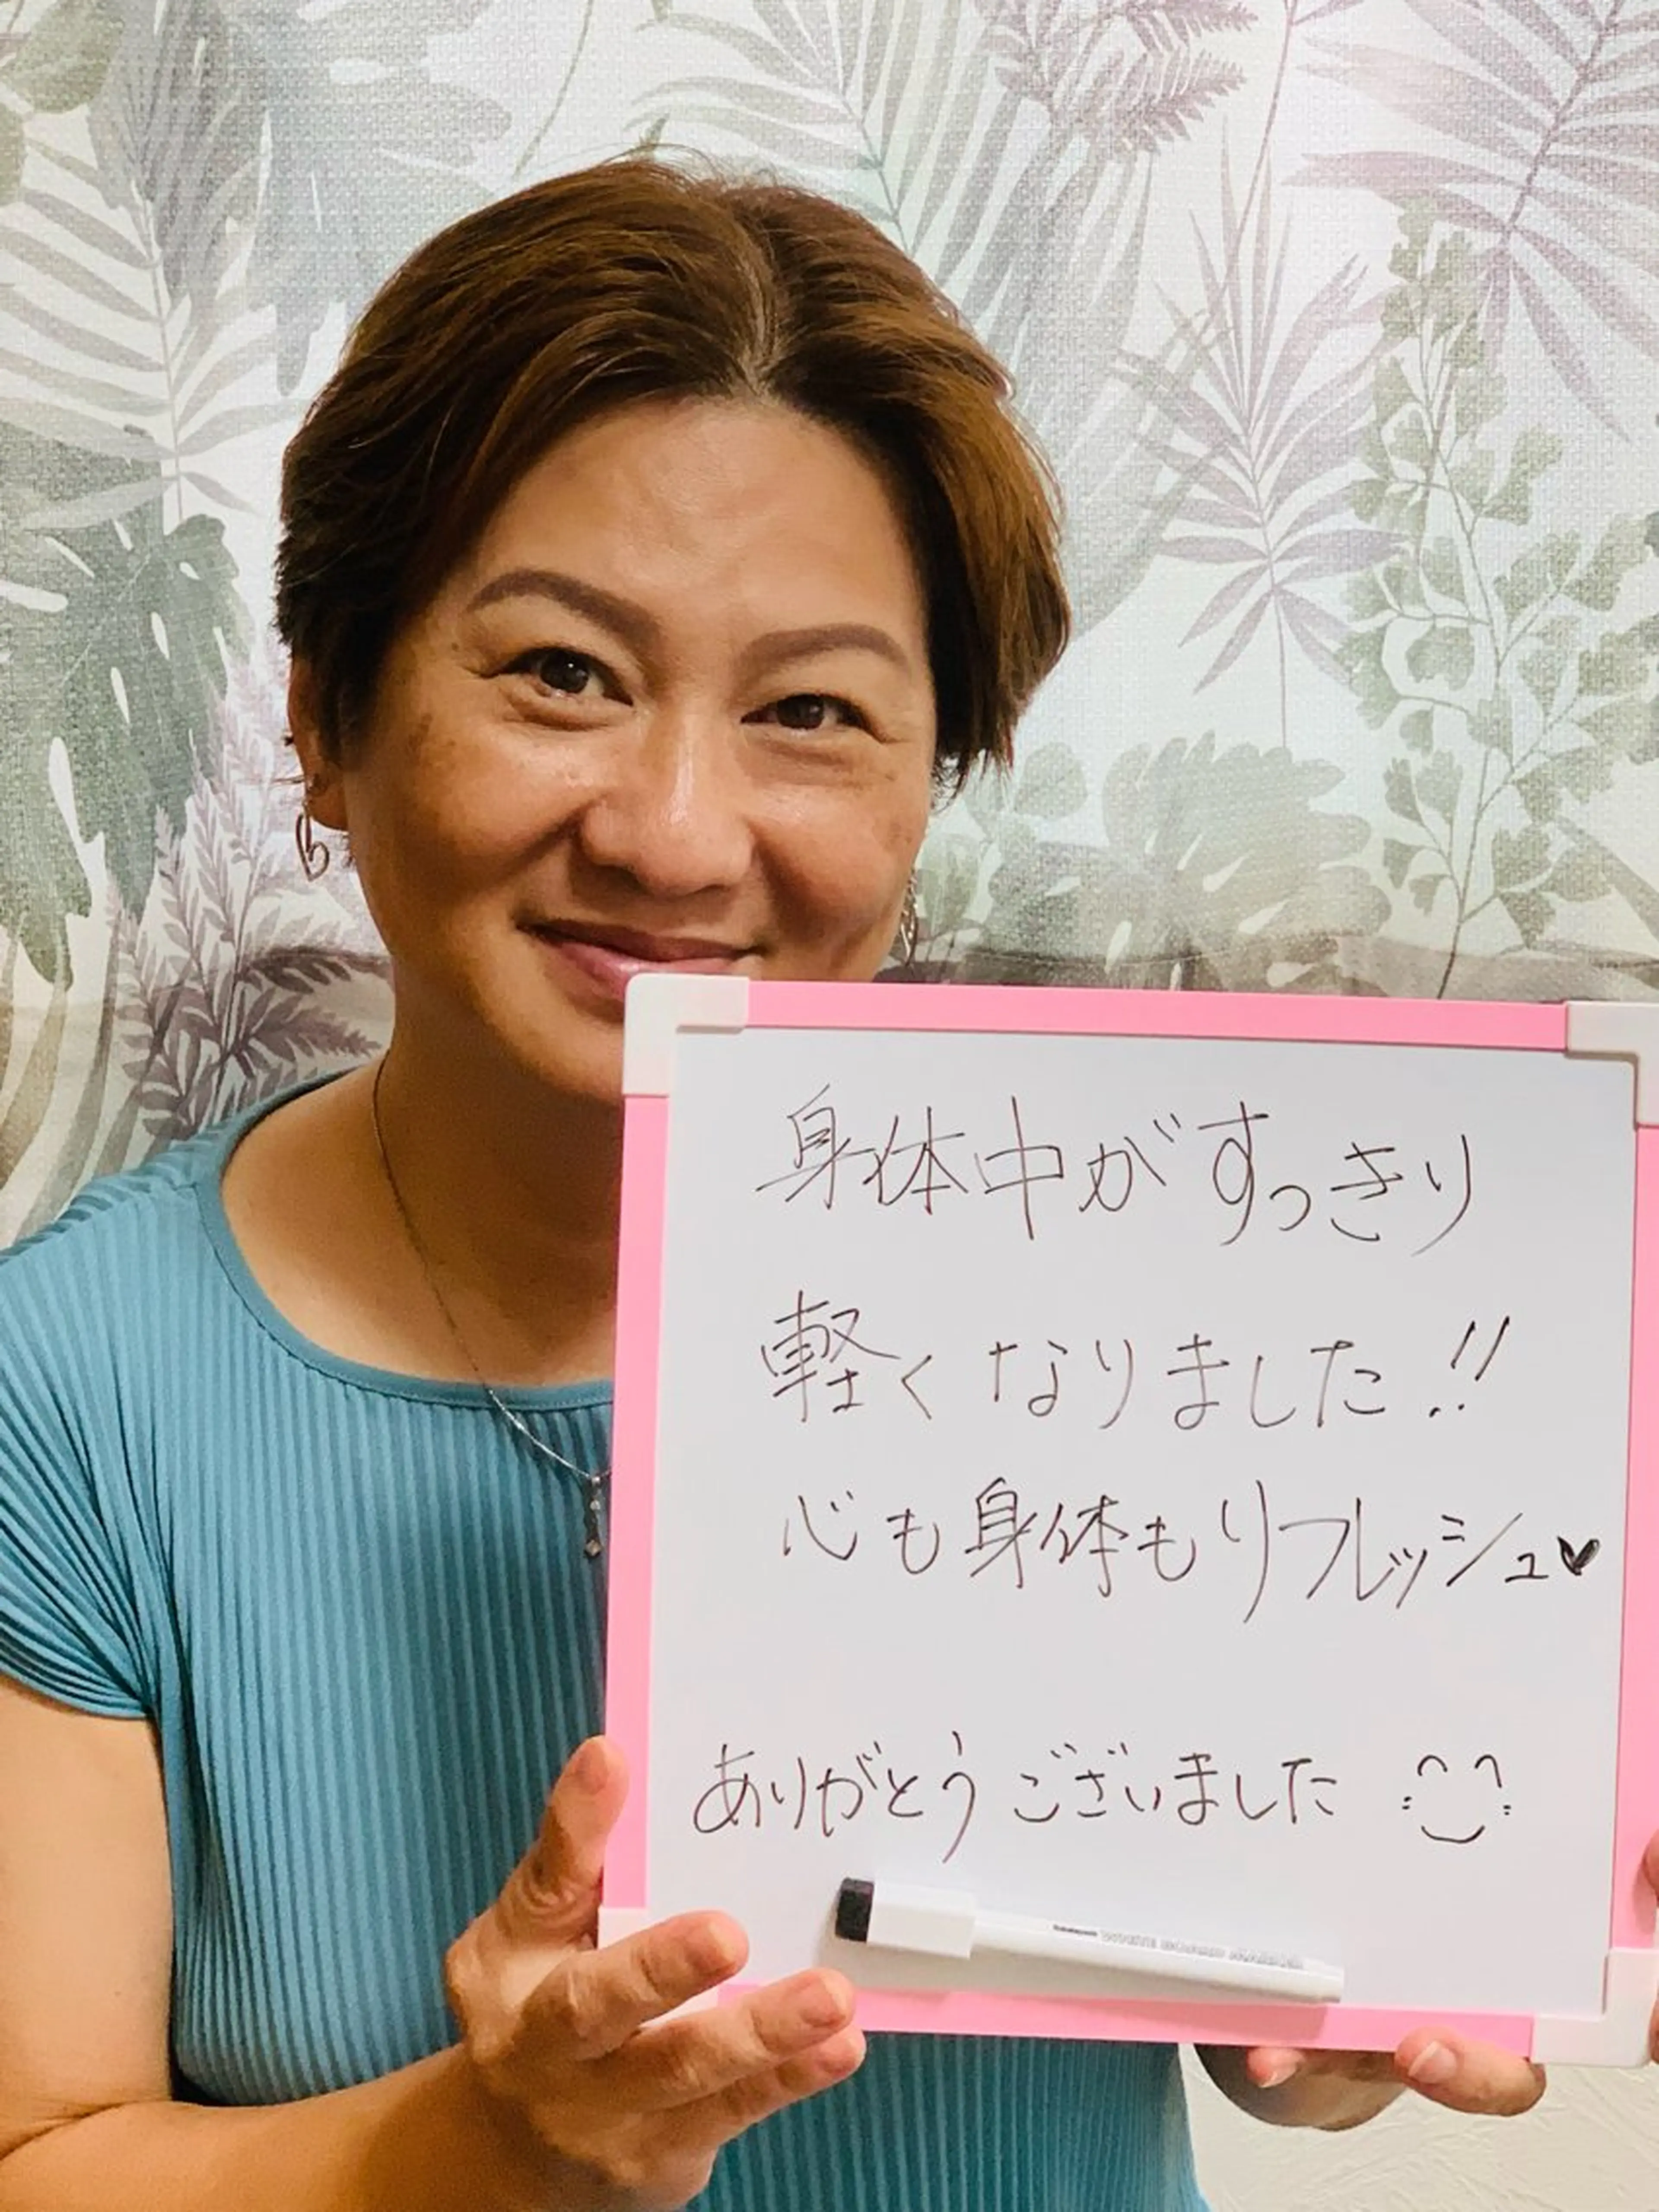 身体中がすっきり
軽くなりました!!
心も身体もリフレッシュ♥
ありがとうございました
WHITE BOARD MARKER